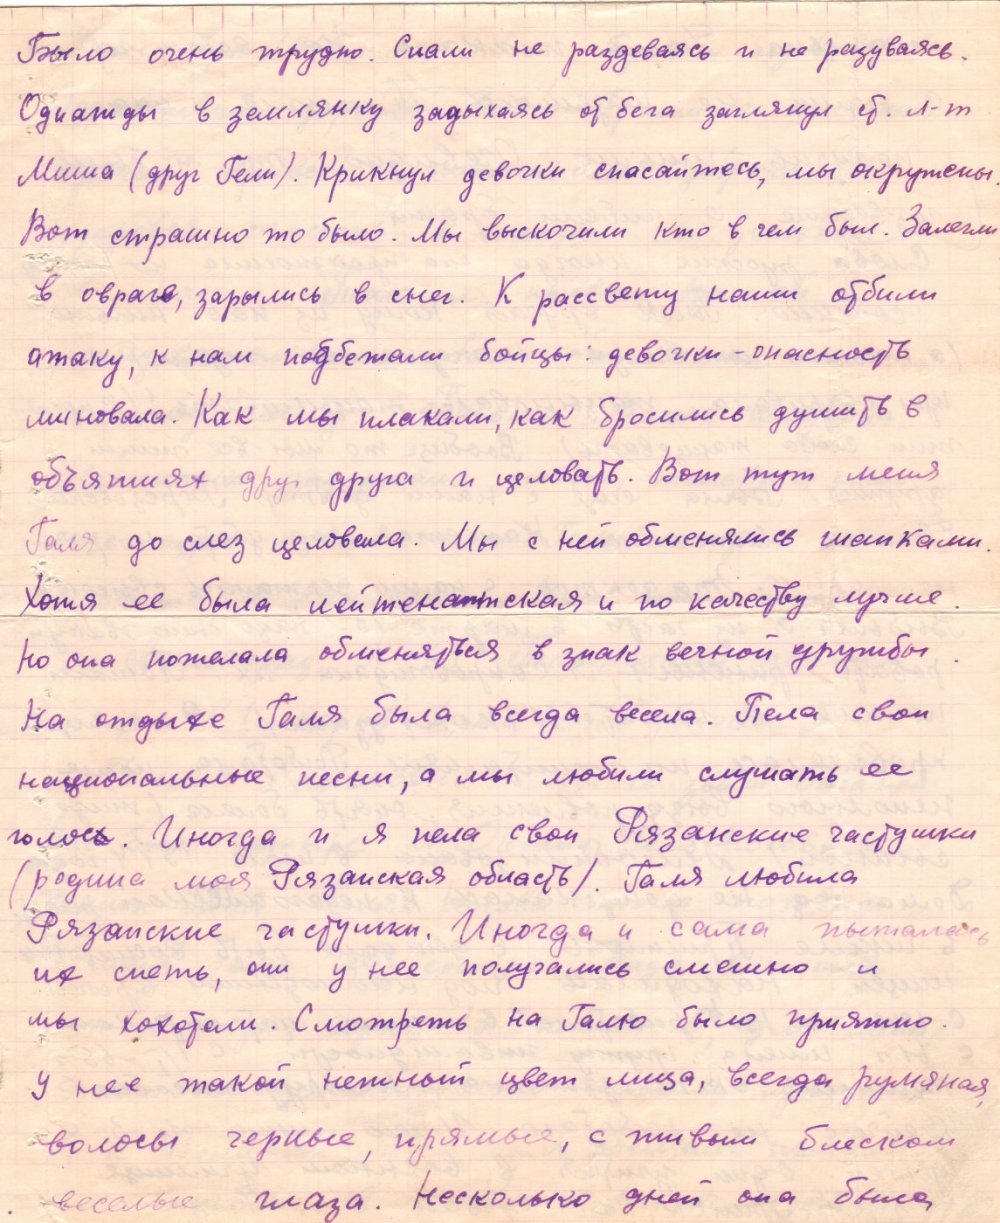 Было очень трудно. Спали не раздеваясь и не разуваясь.
Однажды в землянку задыхаясь от бега заглянул ст. л-т
Миша (друг Гели). Крикнул девочки спасайтесь, мы окружены.
Вот страшно то было. Мы выскочили кто в чем был. Залегли
в овраге, зарылись в снег. К рассвету наши отбили
атаку, к нам подбежали бойцы: девочки - опасность
миновала. Как мы плакали, как бросились душить в
объятиях друг друга и целовать. Вот тут меня
Галя до слез целовала. Мы с ней обменялись шапками.
Хотя ее была лейтенантская и по качеству лучше.
Но она пожелала обменяться в знак вечной дружбы.
На отдыхе Галя была всегда весела. Пела свои
национальные песни, а мы любили слушать ее
голос. Иногда и я пела свои Рязанские частушки
(родина моя Рязанская область). Галя любила
Рязанские частушки. Иногда и сама пыталась
их спеть, они у нее получались смешно и
мы хохотали. Смотреть на Галю было приятно.
У нее такой нежный цвет лица, всегда румяная,
волосы черные, прямые, с живым блеском
веселые глаза. Несколько дней она была